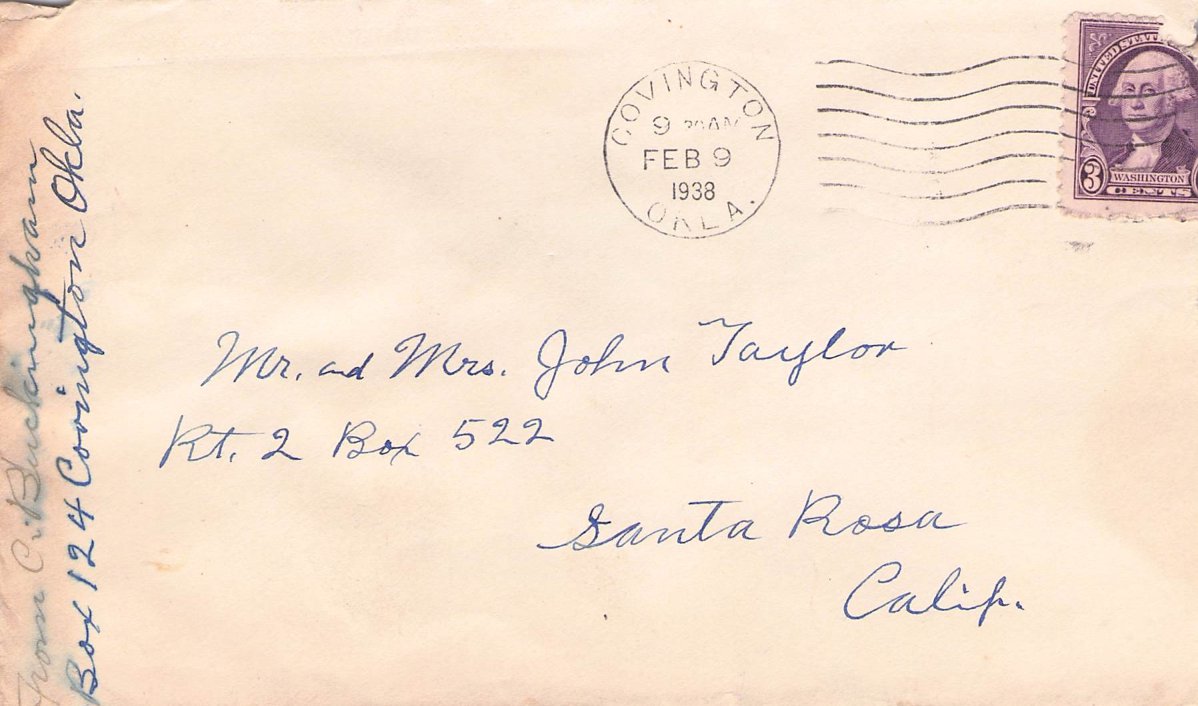 From C. Buckingham
Box 124 Covington Okla.
COVINGTON
9 AM
FEB 9
1938
OKLA.
UNITED STAT
3
WASHINGTON
CENTS
Mr. and Mrs. John Taylor
Rt. 2 Box 522
Santa Rosa
Calif.